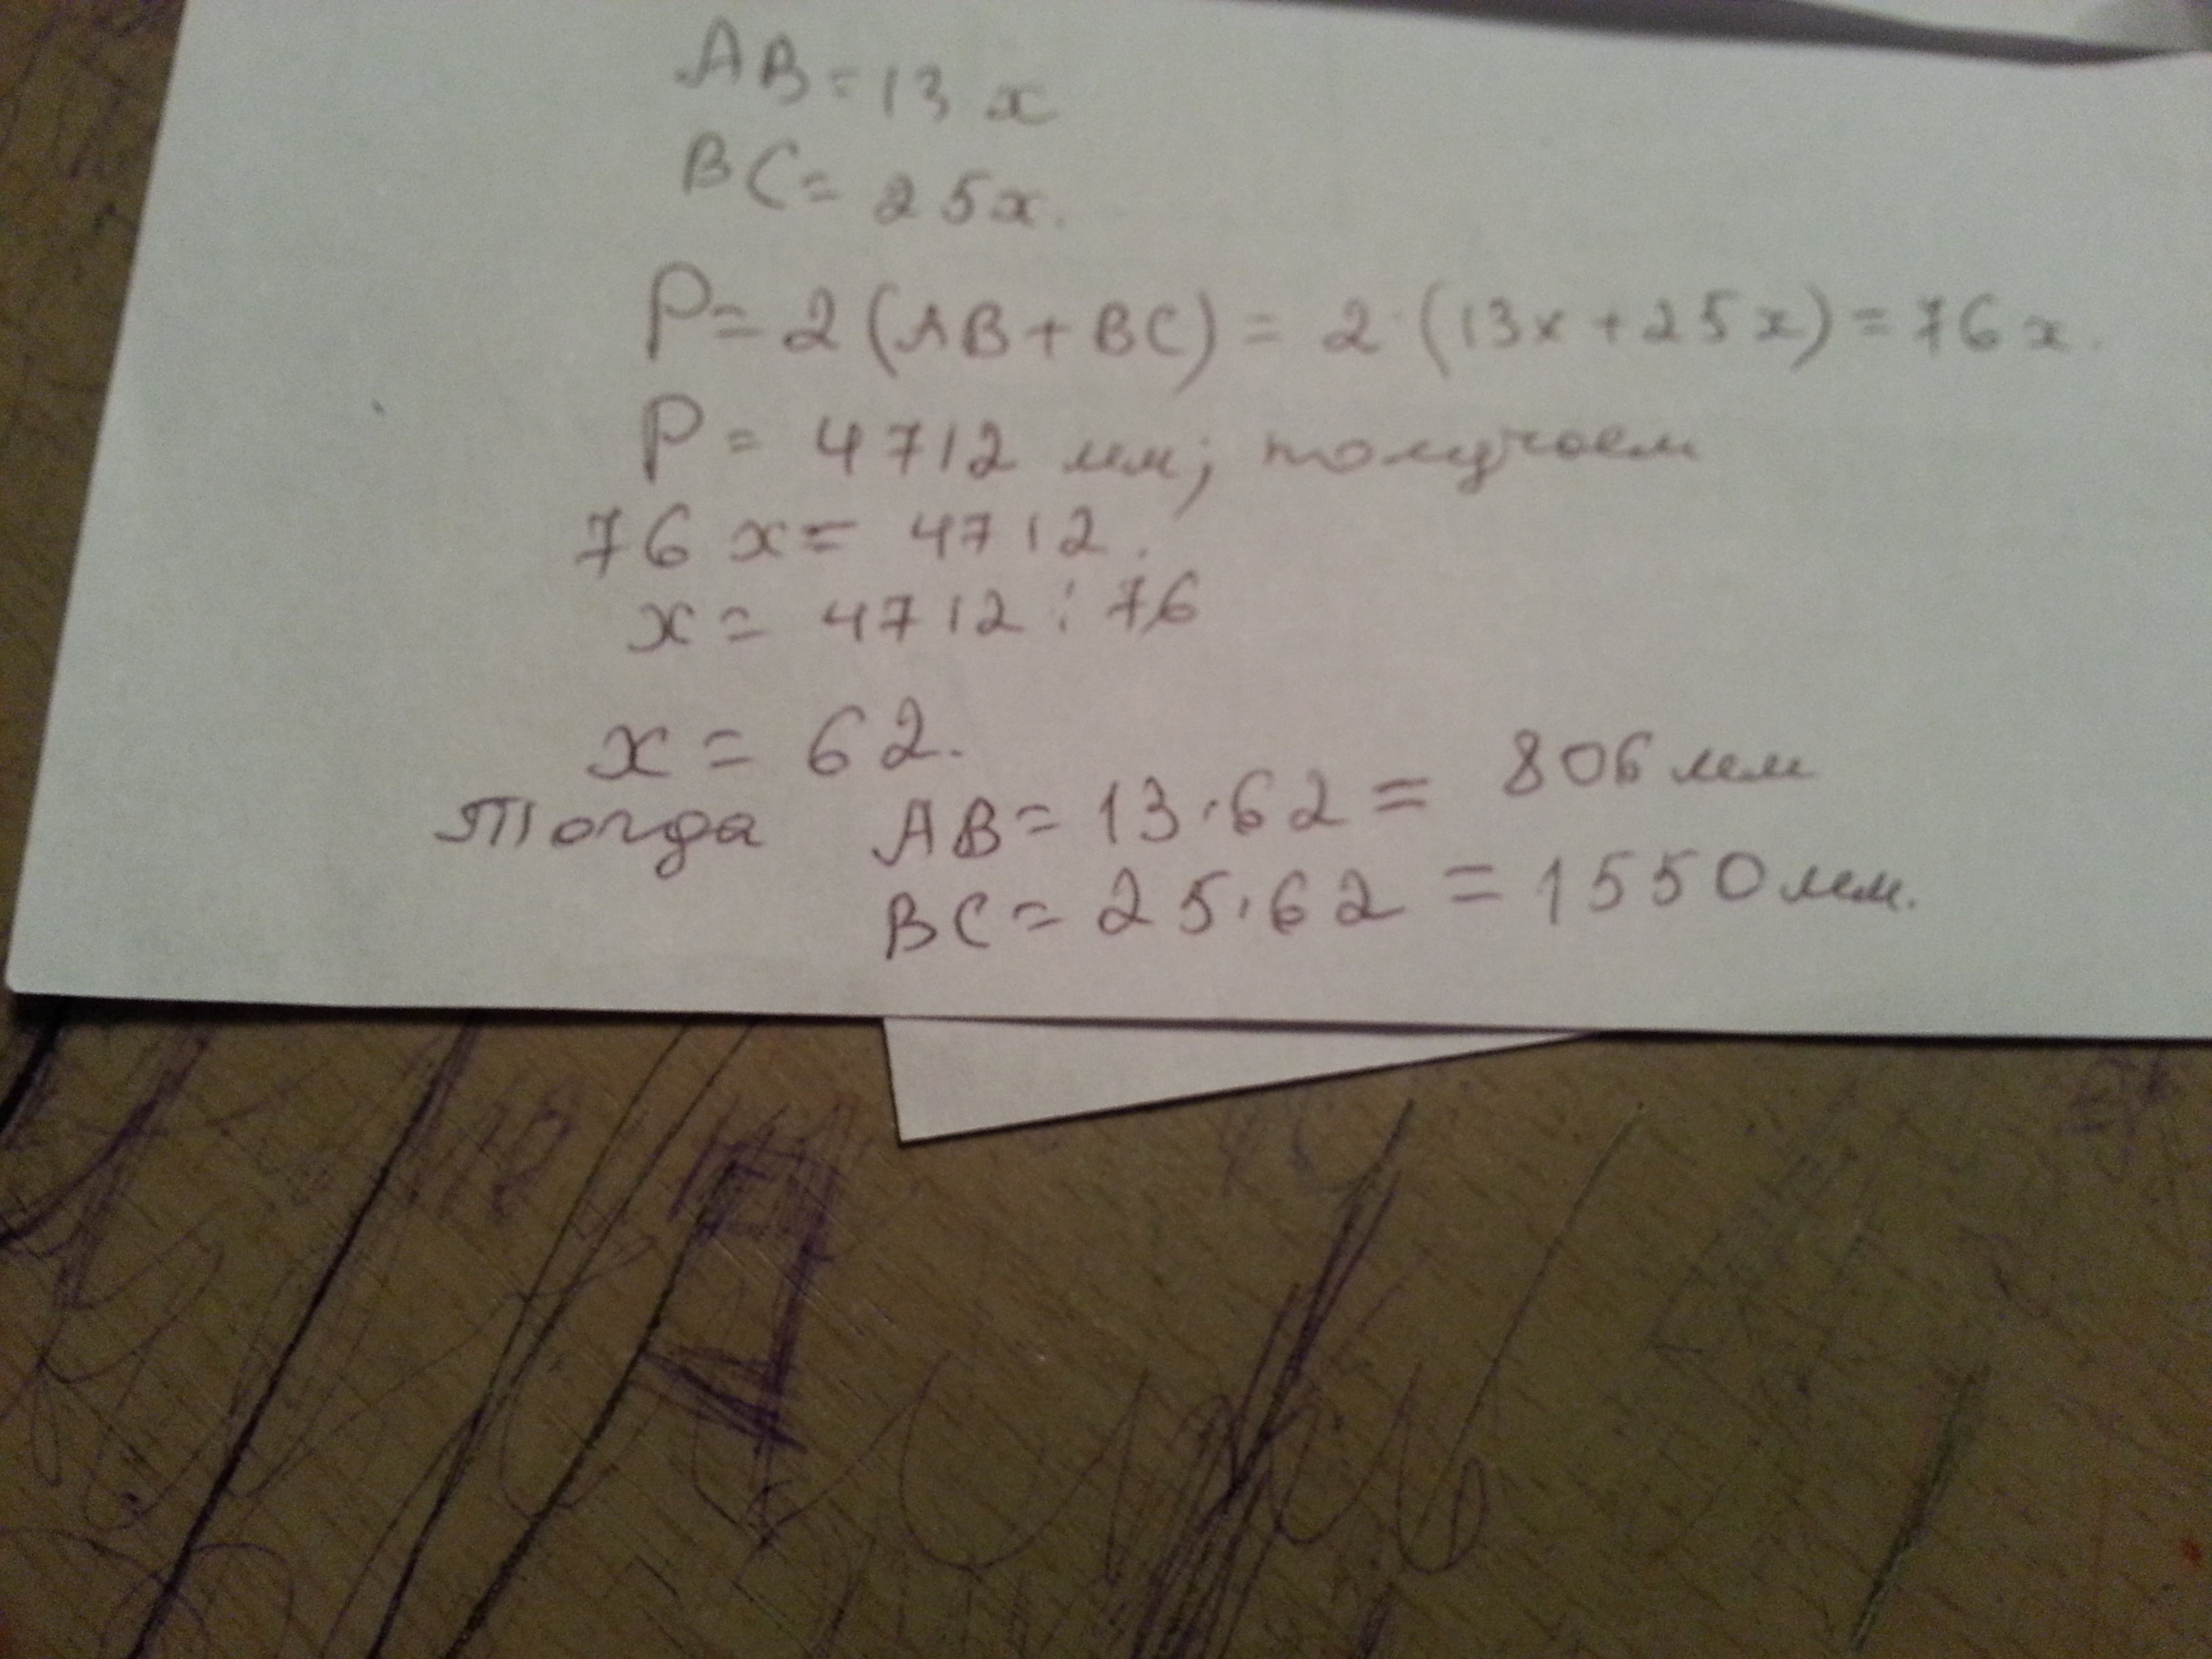 AB = 13 x
BC = 25x.
P = 2 (AB + BC) = 2 · (13x + 25x) = 76 x.
P = 4712 мм; получаем
76 x = 4712.
x = 4712 : 76
x = 62.
Тогда AB = 13 · 62 = 806 мм
BC = 25 · 62 = 1550 мм.